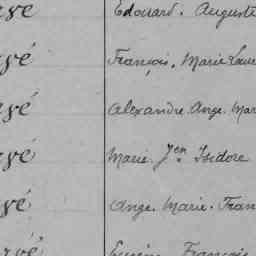 vé Edouard. Auguste
vé François. Marie
vé Alexandre. Ange. Mar
vé Marie. Jen. Isidore
vé Ange. Marie. Fran
vé Eugène François